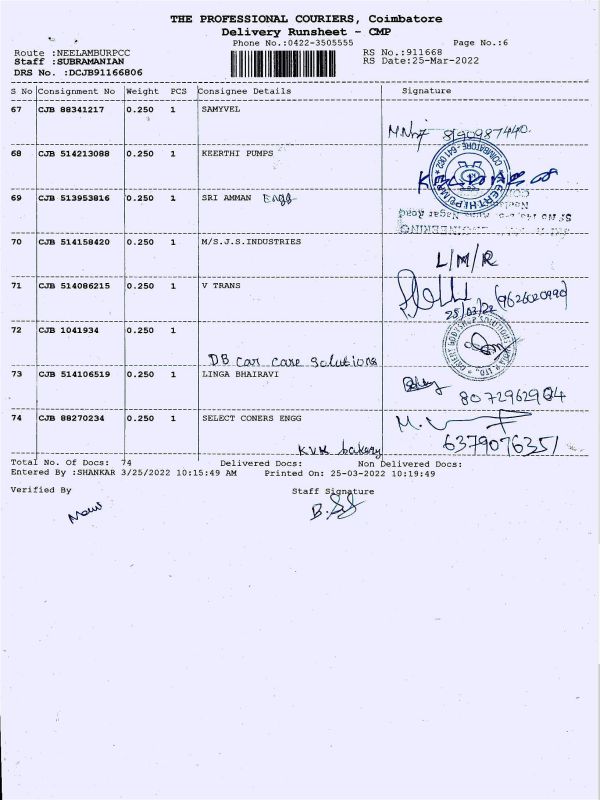 THE PROFESSIONAL COURIERS, Coimbatore
Delivery Runsheet - CMP
Phone No.:0422-3505555 Page No.:6
Route :NEELAMBURPCC RS No.:911668
Staff :SUBRAMANIAN RS Date:25-Mar-2022
DRS No. :DCJB91166806
S No Consignment No Weight PCS Consignee Details Signature
67 CJB 88341217 0.250 1 SAMYVEL
8190987440.
68 CJB 514213088 0.250 1 KEERTHI PUMPS
COIMBATORE-641 062
KEERTHI PUMPS
69 CJB 513953816 0.250 1 SRI AMMAN Engg
70 CJB 514158420 0.250 1 M/S.J.S.INDUSTRIES
L/M/R
71 CJB 514086215 0.250 1 V TRANS
(9626020990)
25/03/22
72 CJB 1041934 0.250 1
DB Car care Solutions
73 CJB 514106519 0.250 1 LINGA BHAIRAVI
8072962904
74 CJB 88270234 0.250 1 SELECT CONERS ENGG
KVK bakery 6379076351
Total No. Of Docs: 74 Delivered Docs: Non Delivered Docs:
Entered By :SHANKAR 3/25/2022 10:15:49 AM Printed On: 25-03-2022 10:19:49
Verified By Staff Signature